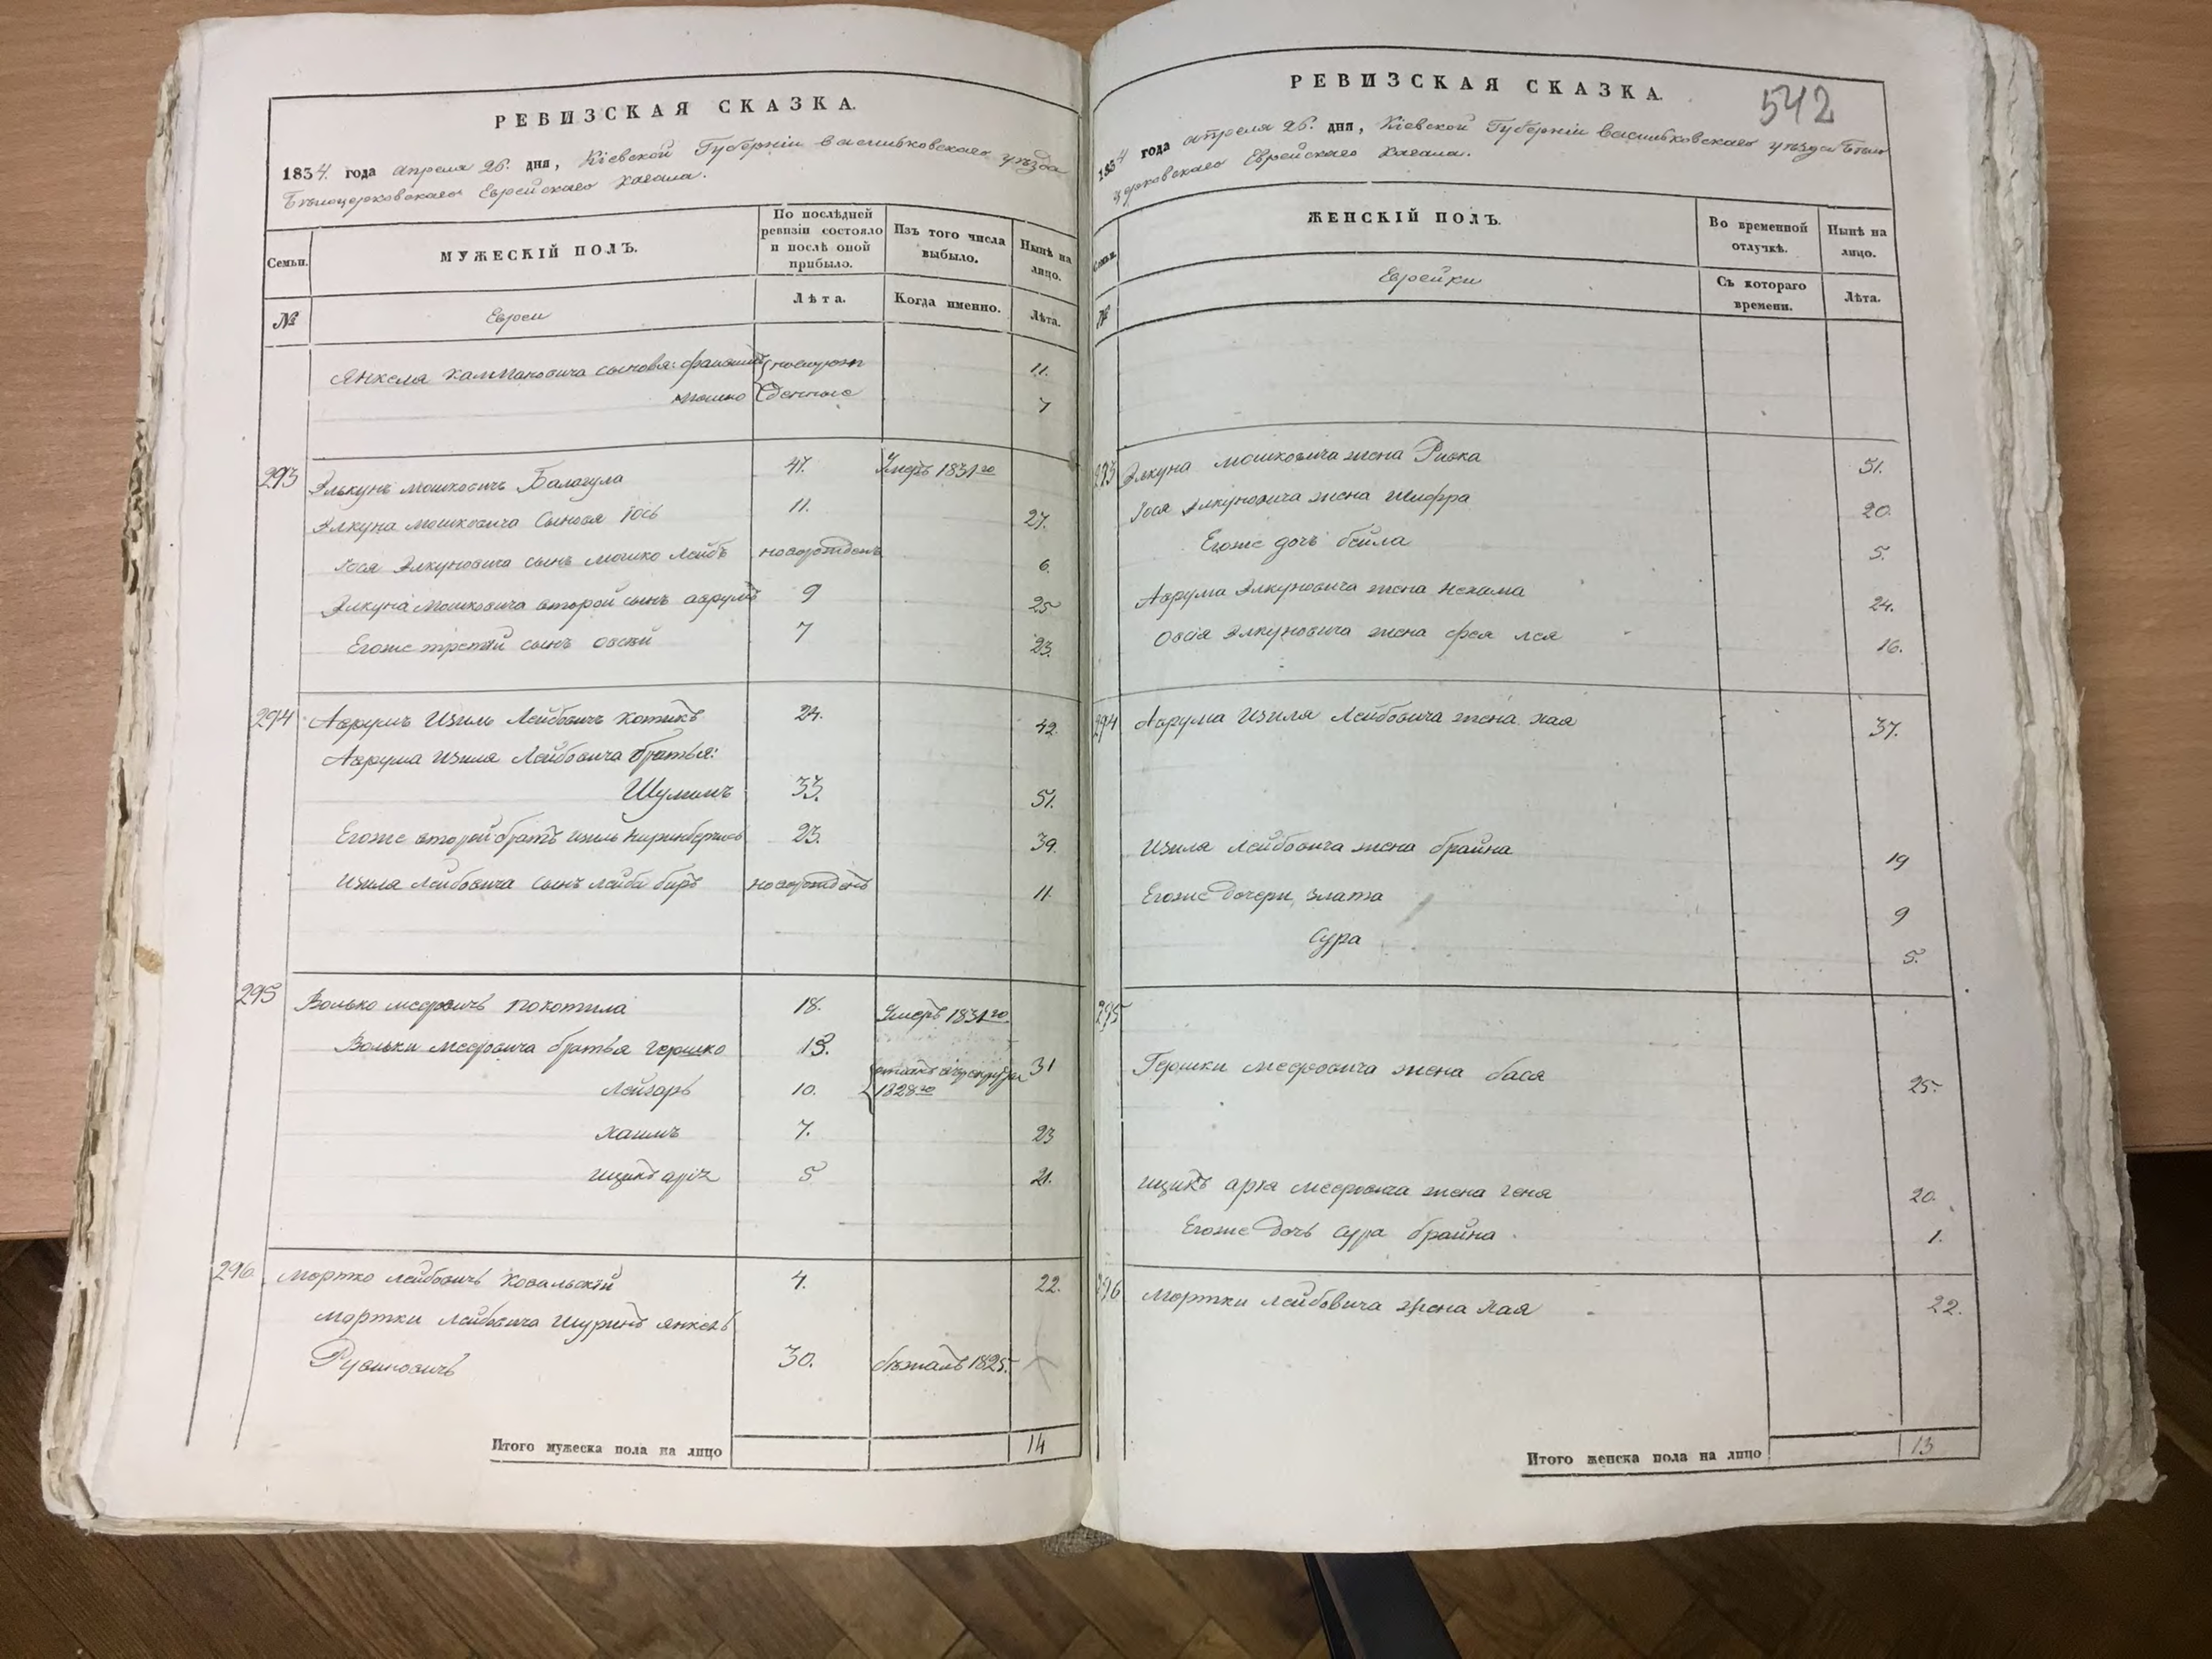 РЕВИЗСКАЯ СКАЗКА.
1834 года апреля 26. дня, Кіевской Губерніи Васильковскаго уѣзда
Бѣлоцерковскаго Еврейскаго Кагала.
Семьи.
МУЖЕСКІЙ ПОЛЪ.
По послѣдней
ревизіи состояло
и послѣ оной
прибыло.
Изъ того числа
выбыло.
Нынѣ на
лицо.
№
Евреи
Лѣта.
Когда именно.
Лѣта.
Янкеля сыновья: 11.
Мошко 7
293 Элькунъ Мошковичъ Балагула 47. Умеръ 1831го
Элкуна Мошковича сыновья Іось 11. 27.
Іося Элкуновича сынъ Мошко Лейбъ новорожденъ 6.
Элкуна Мошковича второй сынъ Аврумъ 9 25
Егоже третій сынъ Овсій 7 23.
294 Аврумъ Изиль Лейбовичъ Котикъ 24. 42.
Аврума Изиля Лейбовича братья:
Шулимъ 33. 51.
Егоже второй братъ Изиль 23. 39.
Изиля Лейбовича сынъ Лейба Беръ новорожденъ 11.
295 Волько Мееровичъ Похотила 18. Умеръ 1831го
Вольки Мееровича братья Гершко 15. 31
Лейзоръ 10. 1828го
Хаимъ 7. 23
Ицикъ 5 21.
296 Мортко Лейбовичъ Ковальскій 4. 22.
Мортки Лейбовича Шуринъ Янкель
Рувиновичъ 30. бѣжалъ 1825.
Итого мужеска пола на лицо 14
РЕВИЗСКАЯ СКАЗКА.
542
1834 года апреля 26. дня, Кіевской Губерніи Васильковскаго уѣзда Бѣло
церковскаго Еврейскаго Кагала.
Семьи.
ЖЕНСКІЙ ПОЛЪ.
Во временной
отлучкѣ.
Нынѣ на
лицо.
№
Еврейки
Съ котораго
времени.
Лѣта.
293 Элкуна Мошковича жена Ривка 51.
Іося Элкуновича жена Шифра 20.
Егоже дочь Бейла 5.
Аврума Элкуновича жена Нехама 24.
Овсія Элкуновича жена Фея Лея 16.
294 Аврума Изиля Лейбовича жена Хая 37.
Изиля Лейбовича жена Брайна 19
Егоже дочери Злата 9
Сура 5.
295
Гершки Мееровича жена Бася 25.
Ицикъ Мееровича жена Геня 20.
Егоже дочь Сура Брайна 1.
296 Мортки Лейбовича жена Хая 22.
Итого женска пола на лицо 13